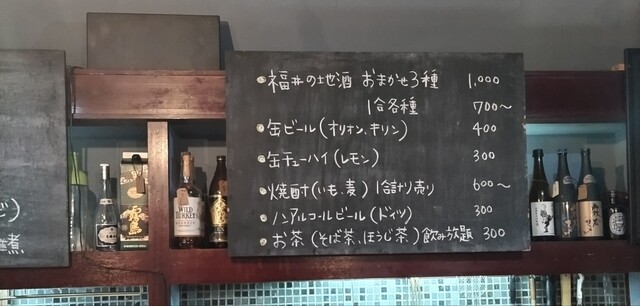 福井の地酒 おまかせ3種 1,000
1合各種 700〜
缶ビール(オリオン、キリン) 400
缶チューハイ(レモン) 300
焼酎(いも、麦) 1合計り売り 600〜
ノンアルコールビール(ドイツ) 300
お茶(そば茶、ほうじ茶)飲み放題 300
WILD TURKEY